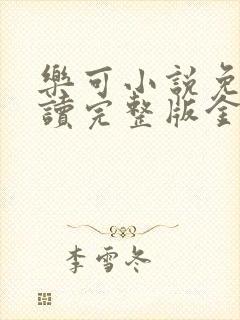 樂可小說免
讀完整版全
李雪冬